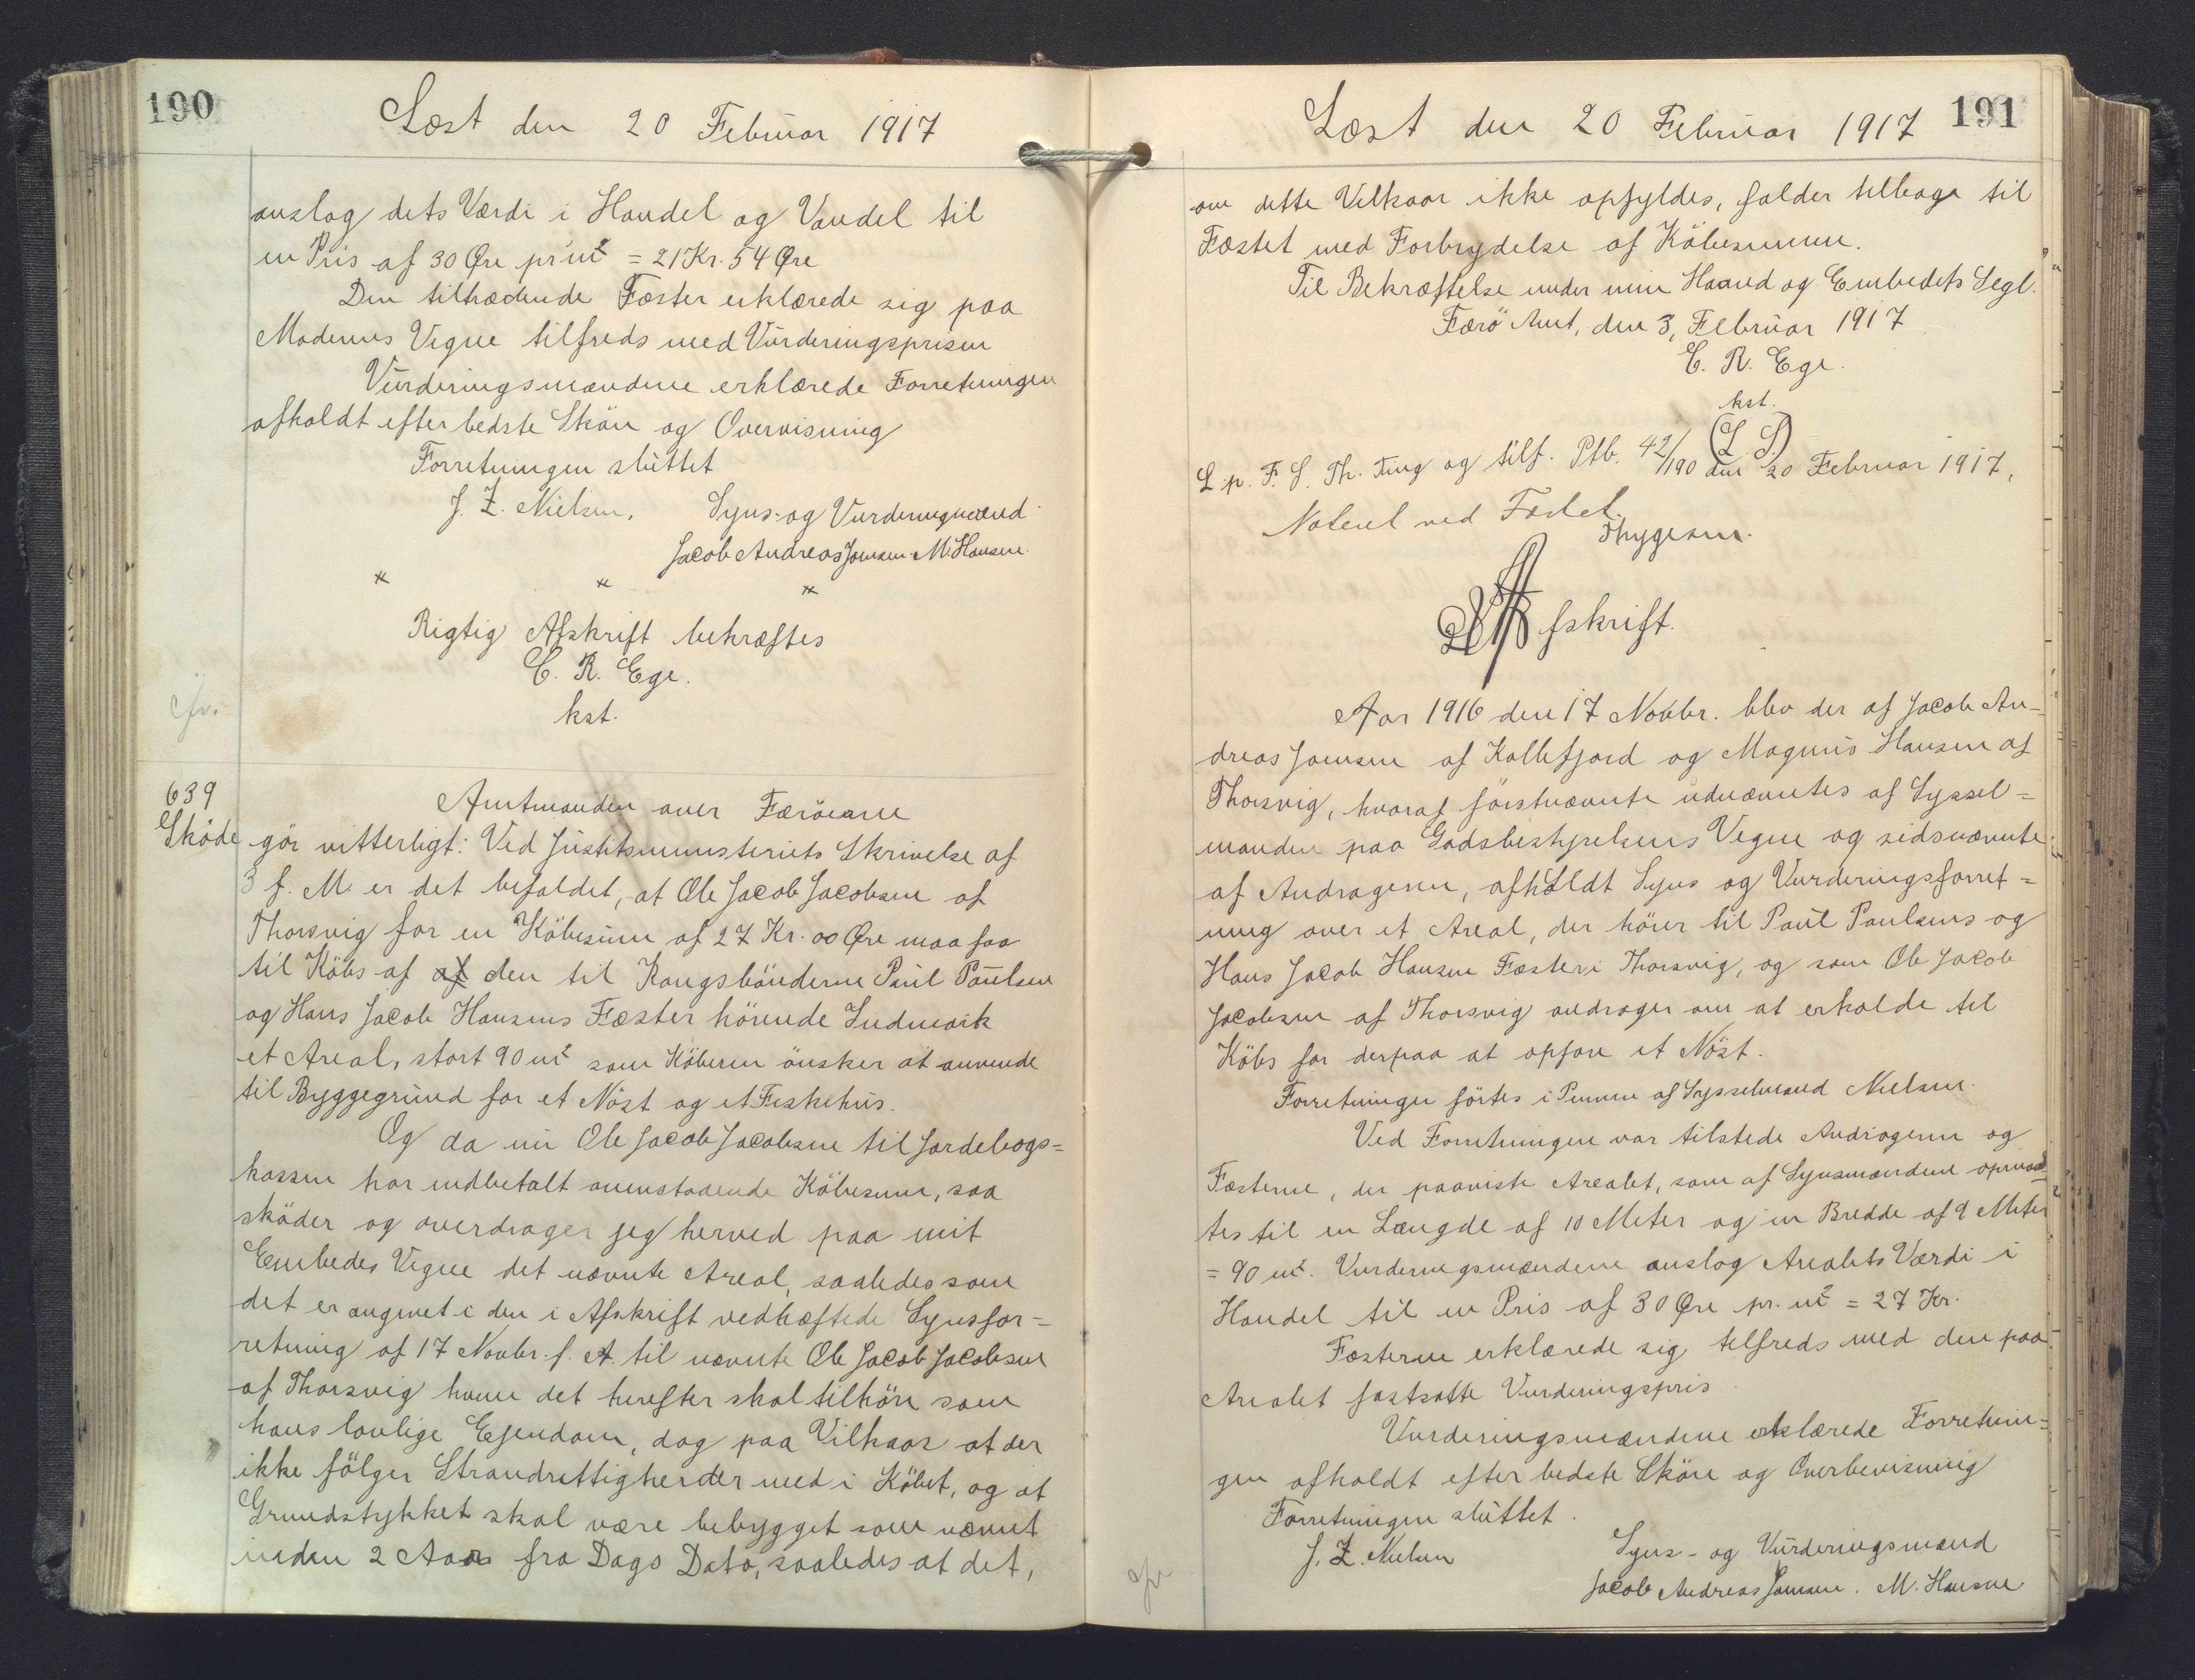 190
Læst den 20 Februar 1917
anslog dets Værdi i Handel og Vandel til
en Pris af 30 Øre pr m² = 21 Kr. 54 Øre
Den tiltrædende Fæster erklærede sig paa
Moderens Vegne tilfreds med Vurderingsprisen
Vurderingsmændene erklærede Forretningen
afholdt efter bedste Skön og Overvisning
Forretningen sluttet
J. Z. Nielsen. Syns- og Vurderingmænd
Jacob Andreas Joensen. M. Hansen.
× × ×
Rigtig Afskrift bekræftes
C. R. Ege.
kst.
639
Sköde
Amtmanden over Færöerne
gör vitterligt: Ved Justitsministeriets Skrivelse af
3 f. M. er det befaldet, at Ole Jacob Jacobsen af
Thorsvig for en Köbesum af 27 Kr. 00 Øre maa faa
til Köbs af af den til Kongsbönderne Paul Paulsen
og Hans Jacob Hansens Fæster hörende Indmark
et Areal, stort 90 m² som Köberen önsker at anvende
til Byggegrund for et Nöst og et Fiskehus.
Og da nu Ole Jacob Jacobsen til Jordebogs=
kassen har indbetalt ovenstaaende Köbesum, saa
sköder og overdrager jeg herved paa mit
Embedes Vegne det nævnte Areal, saaledes som
det er angivet i den i Afskrift vedhæftede Synsfor=
retning af 17 Novbr. f. A. til nævnte Ole Jacob Jacobsen
af Thorsvig hvem det herefter skal tilhöre som
hans lovlige Ejendom, dog paa Vilkaar at der
ikke fölger Strandrettigheder med i Köbet, og at
Grundstykket skal være bebygget som nævnt
inden 2 Aar fra Dags Dato, saaledes at det,
191
Læst den 20 Februar 1917
om dette Vilkaar ikke opfyldes, falder tilbage til
Fæstet med Forbrydelse af Köbesummen.
Til Bekræftelse under min Haand og Embedets Segl.
Færö Amt, den 3, Februar 1917
C. R. Ege.
kst.
(L. S.)
L. p. F. S. Th. Ting og tilf. Ptb. 42/190 den 20 Februar 1917,
Noteret ved Fæstet.
Thygesen.
Afskrift.
Aar 1916 den 17 Novbr. blev der af Jacob An-
dreas Joensen af Kollefjord og Magnus Hansen af
Thorsvig, hvoraf förstnævnte udnævntes af Syssel=
manden paa Godsbestyrelsens Vegne og sidsnævnte
af Andrageren, afholdt Syns og Vurderingsforret=
ning over et Areal, der hörer til Paul Paulsens og
Hans Jacob Hansen Fæster i Thorsvig, og som Ole Jacob
Jacobsen af Thorsvig andrager om at erholde til
Köbs for derpaa at opföre et Nöst.
Forretningen förtes i Pennen af Sysselmand Nielsen.
Ved Forretningen var tilstede Andrageren og
Fæsterne, der paaviste Arealet, som af Synsmændene opmaal
tes til en Længde af 10 Meter og en Bredde af 9 Meter
= 90 m². Vurderingsmændene anslog Arealets Værdi i
Handel til en Pris af 30 Øre pr. m² = 27 Kr.
Fæsterne erklærede sig tilfreds med den paa
Arealet fastsatte Vurderingspris.
Vurderingsmændene erklærede Forretnin=
gen afholdt efter bedste Skön og Overbevisning
Forretningen sluttet.
J. Z. Nielsen Syns- og Vurderingsmænd
Jacob Andreas Joensen. M. Hansen